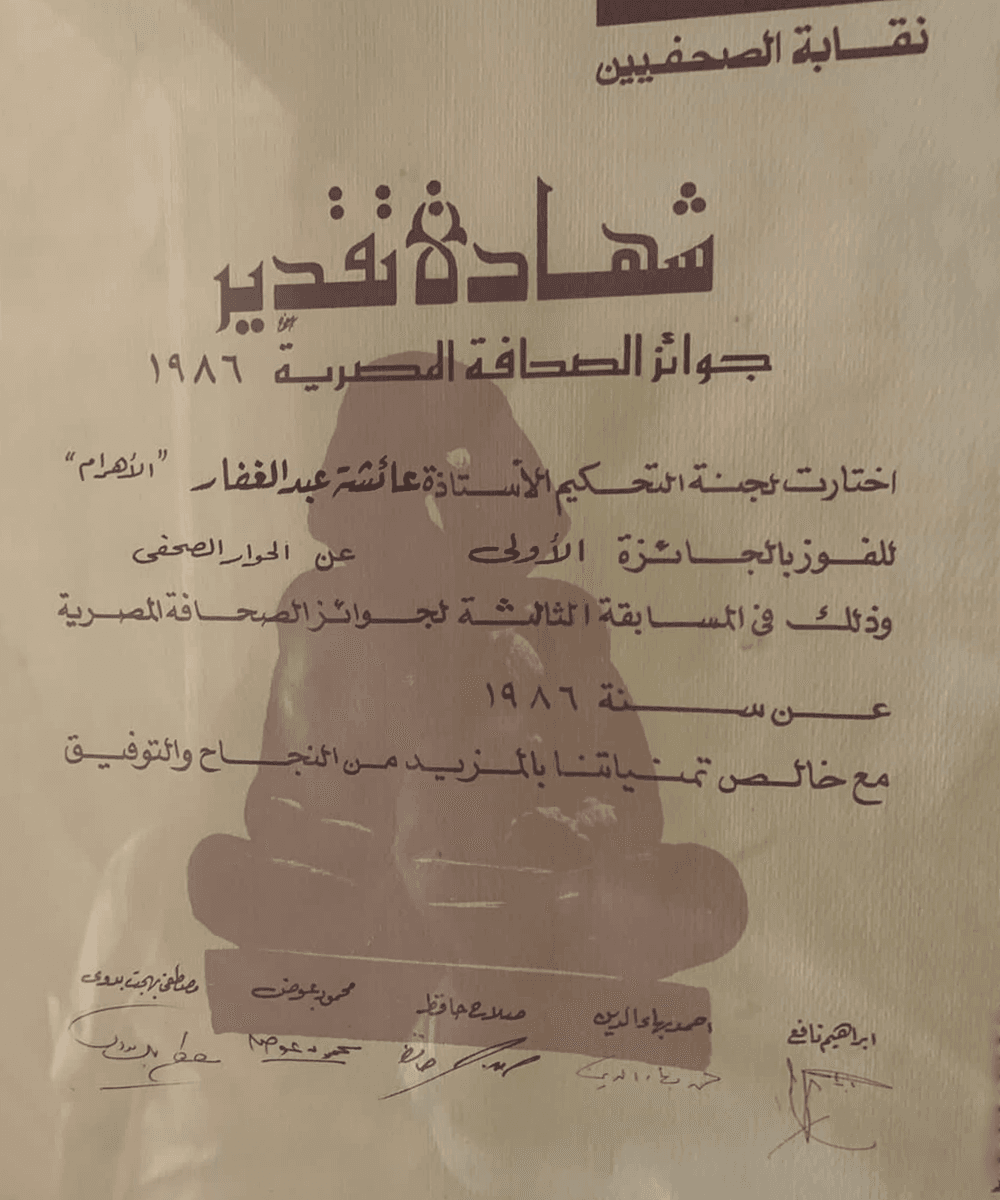 نقابة الصحفيين
شهادة تقدير
جوائز الصحافة المصرية ١٩٨٦
اختارت لجنة التحكيم الأستاذة عائشة عبد الغفار "الأهرام"
للفوز بالجائزة الأولى عن الحوار الصحفى
وذلك فى المسابقة الثالثة لجوائز الصحافة المصرية
عن سنة ١٩٨٦
مع خالص تمنياتنا بالمزيد من النجاح والتوفيق
ابراهيم نافع احمد بهاء الدين صلاح حافظ محمود عوض مصطفى بهجت بدوى
حافظ محمود عوض